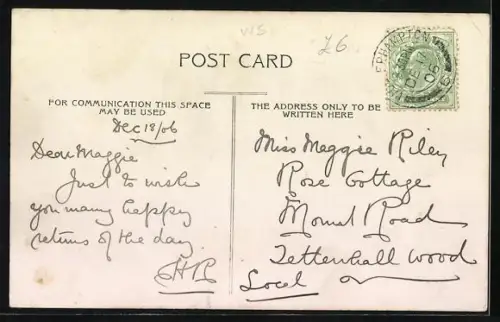 VIS
£6
POST CARD
FOR COMMUNICATION THIS SPACE
MAY BE USED
THE ADDRESS ONLY TO BE
WRITTEN HERE
Dec 18/06
Dear Maggie
Just to wish
you many happy
returns of the day
Miss Maggie Riley
Rose Cottage
Mount Road
Tettenhall Wood
Local